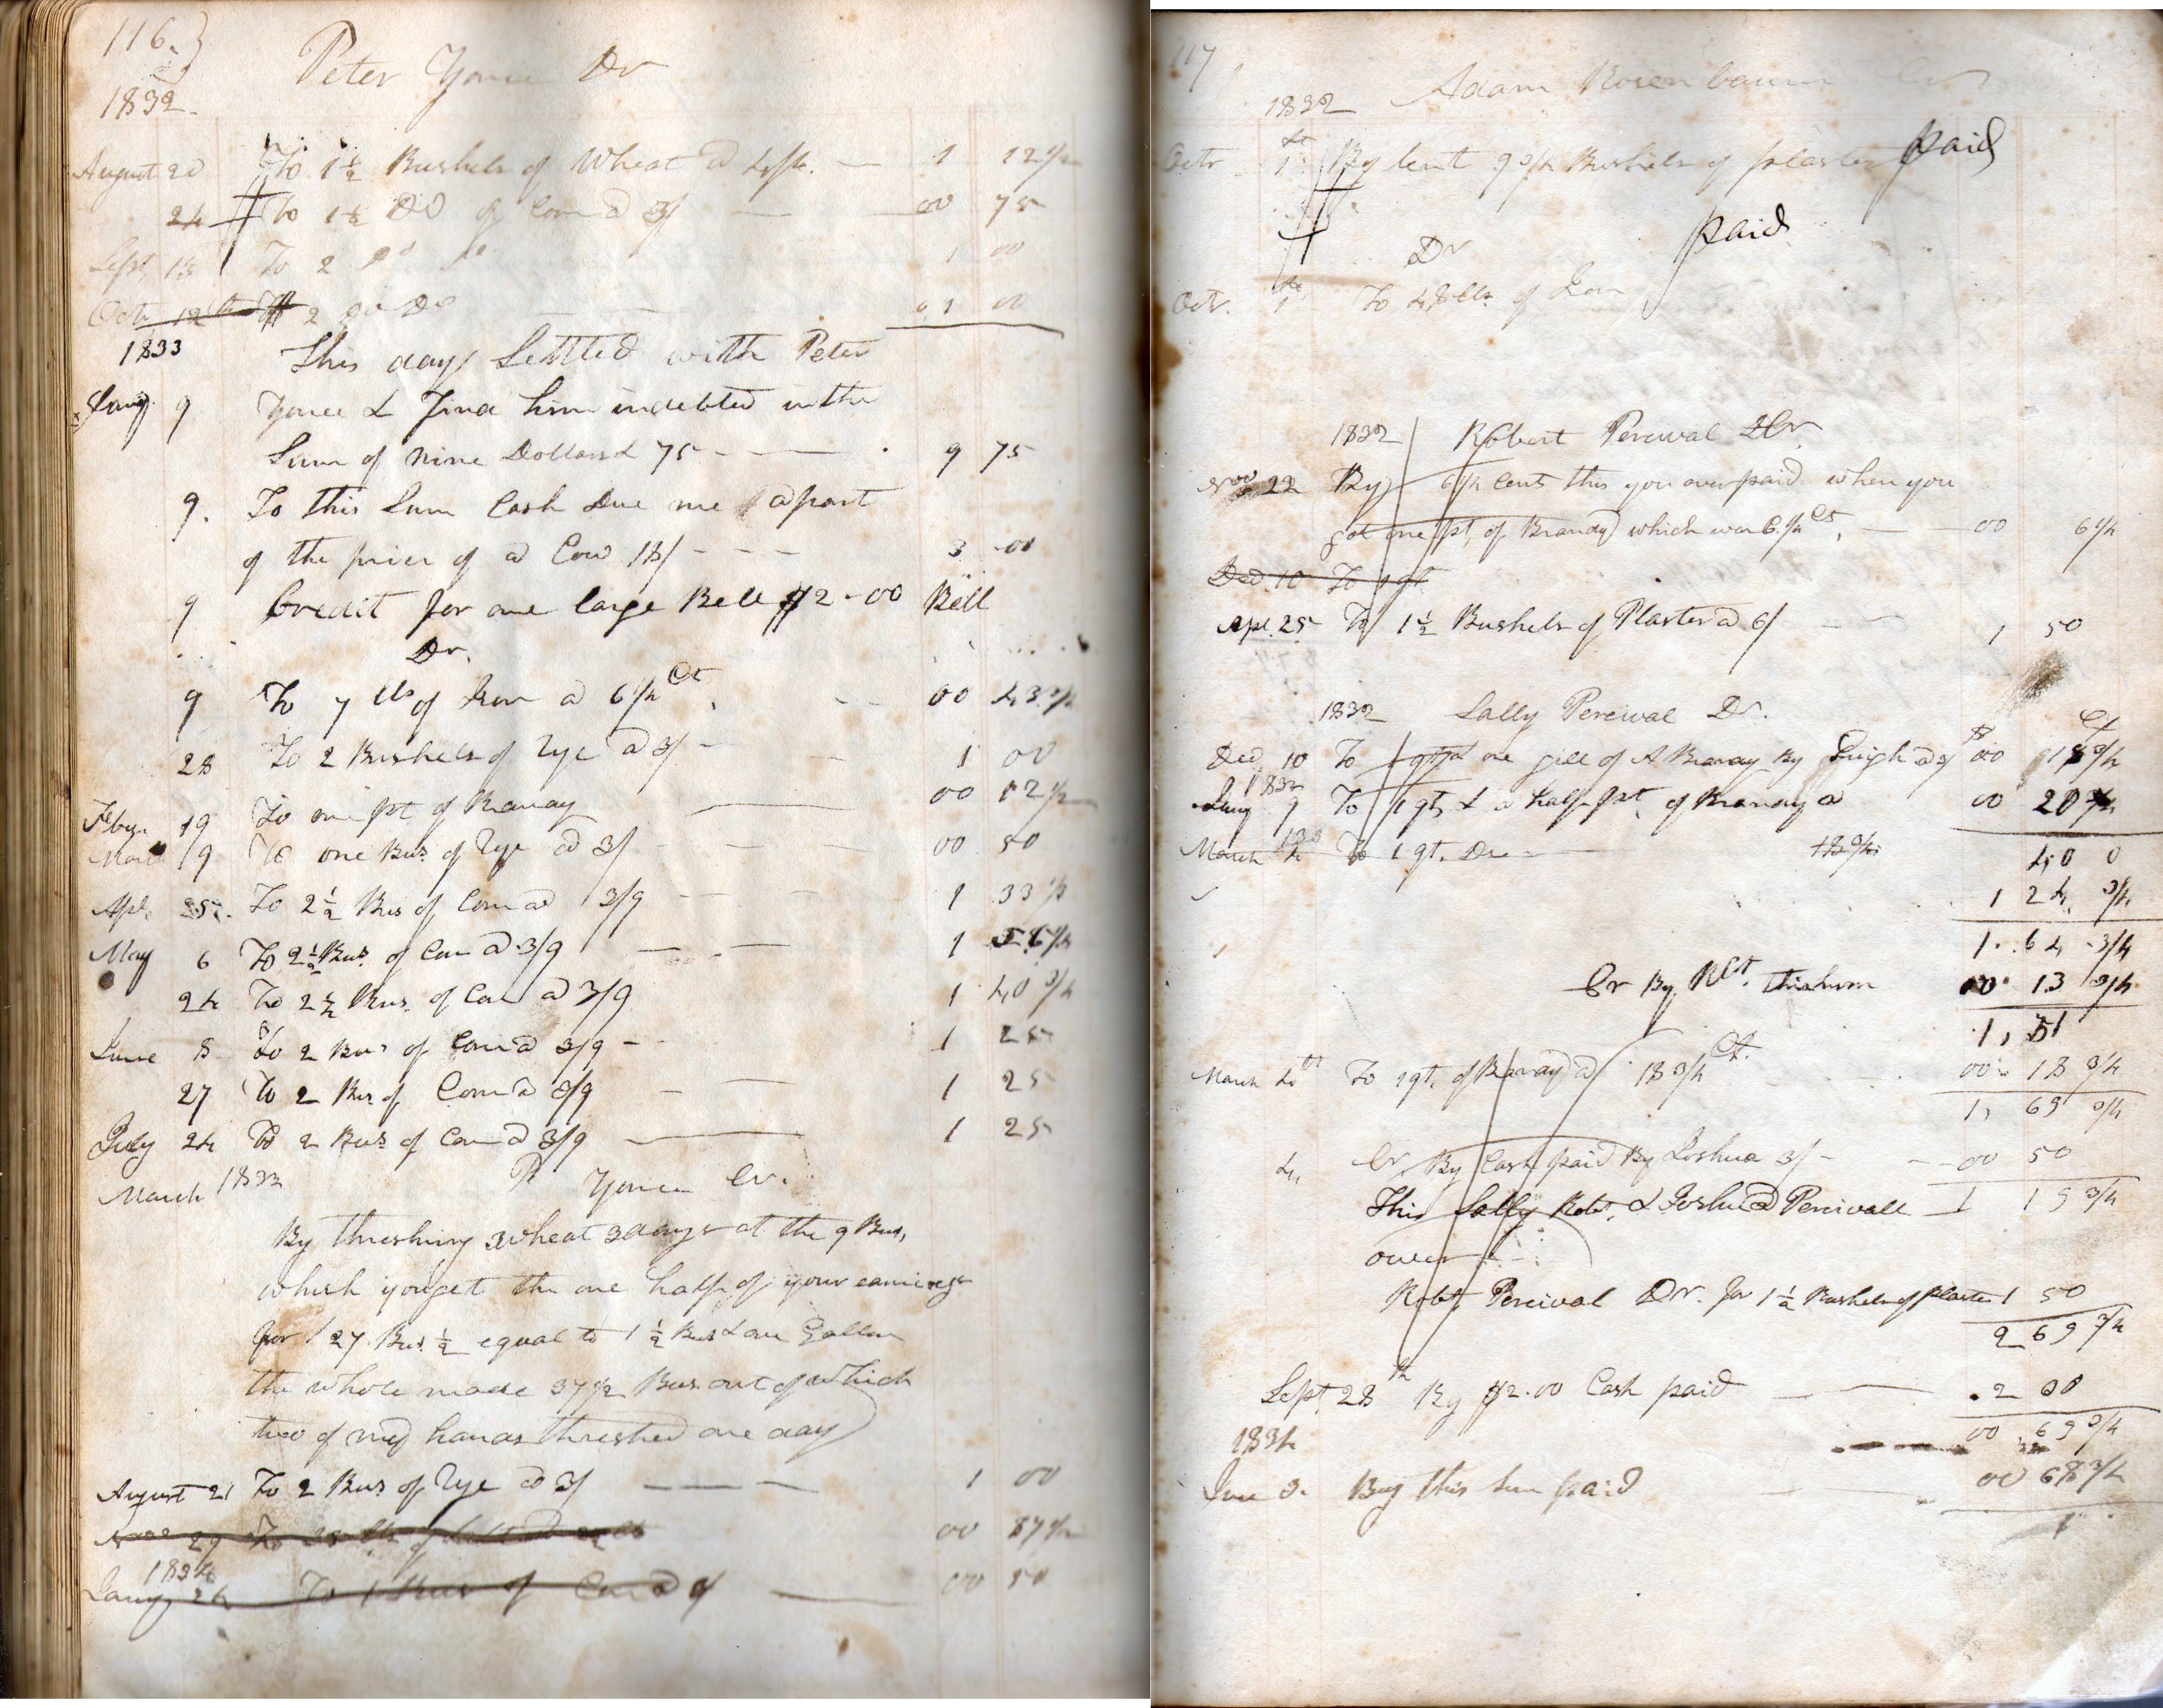 116.
1832.
Peter Youce Dr
August 20 To 1 1/2 Bushels of Wheat @ 4/6. 1 12 1/2
24 To 1 1/2 DO of Corn @ 3/ 00 75
Sept, 13 To 2 Do Do 1 00
Octr 12th 2 Do Do 01 00
1833
This day Settled with Peter
Jany. 9 Youce & Find him indebted in the
Sum of Nine Dollars & 75 9 75
9. To this Sum Cash Due me apart
of the price of a Cow 18/ 3 00
9 Credit for one large Bell $2-00 Bell
Dr.
9 To 7 lbs of Iron @ 6 1/4 Ct. 00 43 3/4
28 To 2 Bushels of Rye @ 3/ 1 00
Feby. 19 To one pt of Branday 00 12 1/2
March 19 To one Bus. of Rye @ 3/ 00 50
Apl. 25. To 2 1/2 Bus of Corn @ 3/9 1 33 1/3
May 6 To 2 1/2 Bus. of Corn @ 3/9 1 56 1/4
24 To 2 1/4 Bus. of Corn @ 3/9 1 40 3/4
June 8 To 2 Bus of Corn @ 3/9 1 25
27 To 2 Bus of Corn @ 3/9 1 25
July 24 To 2 Bus of Corn @ 3/9 1 25
March 1833 P. Youce Cr.
By threshing wheat 3 days at the 9 Bus,
which you get the one half of your earnings
for 27 Bus. 1/2 equal to 1 1/2 Bus & one Gallon
the whole made 37 1/2 Bus out of which
two of my hands threshed one day
August 21 To 2 Bus of Rye @ 3/ 1 00
29 To 00 87 1/2
1834
Jany 24 To 1 Bus of Corn @ 00 50
117
1832 Adam Rosenbaum Cr
Octr 1st By lent 9 3/4 Bushels of plaster paid
Dr paid
Octr. 1st To 48 lbs. of Iron
1832 Robert Percival Cr
Nov 22 By 6 1/4 Cents this you overpaid when you
got one pt, of Branday which was 6 1/4 Cts, 00 6 1/4
Ded. 10 To 1 qt
Apl. 25 To 1 1/2 Bushels of Plaster @ 6/ 1 50
1832 Sally Percival Dr.
$ Ct
Ded, 10 To 1 qt & one gill of A Branday By Leigh @ 00 18 3/4
1833
Jany 9 To 1 qt, & a half pt, of Branday @ 00 20 3/4
March 4 To 1 qt. Do 18 3/4
40 0
1 24 3/4
1. 64 3/4
Cr By Rbt. this sum 00 13 3/4
1, 51
March 4th To 1 qt. of Branday @ 18 3/4 Ct. 00 18 3/4
1, 69 3/4
4, Cr, By Cash paid By Joshua 3/ 00 50
This Sally Robt. & Joshua Percivall 1 19 3/4
owes
Robt, Percival Dr. for 1 1/2 Bushels of plaster 1 50
2 69 3/4
Sept 28th By $2.00 Cash paid 2 00
00 69 3/4
1834
June 3. By this sum paid 00 68 3/4
1